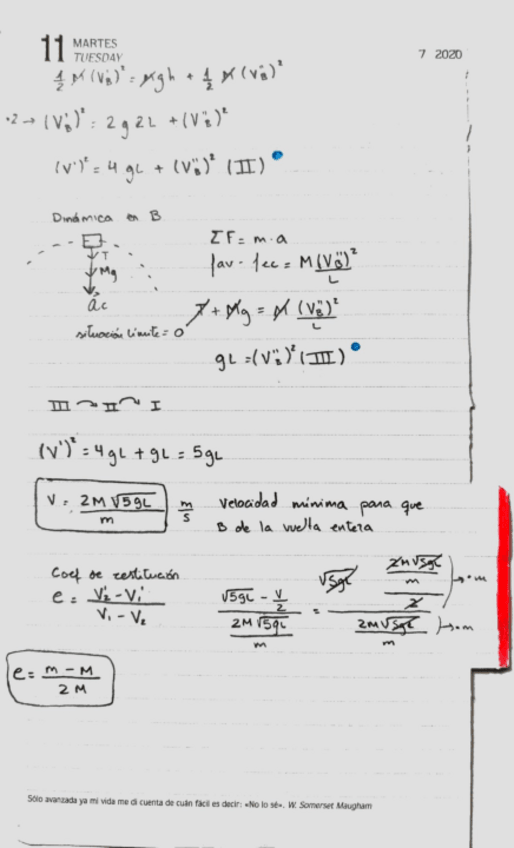 11 MARTES
TUESDAY
7 2020
1/2 M (V'_B)² = Mgh + 1/2 M (V''_B)²
·2 → (V'_B)² = 2g2L + (V''_B)²
(V')² = 4gL + (V''_B)² (II)
Dinámica en B
ΣF = m·a
T
Mg
fav - fec = M (V''_B)² / L
ac
T + Mg = M (V''_B)² / L
situación límite = 0
gL = (V''_B)² (III)
III ↷ II ↷ I
(V')² = 4gL + gL = 5gL
V = 2M √5gL / m m/s Velocidad mínima para que
B de la vuelta entera
Coef de restitución
e = V'₂ - V'₁ / V₁ - V₂
(√5gL - V/2) / (2M √5gL / m) = (√5gL (2M√5gL / m) / 2) / (2M √5gL / m) → ·m → ·m
e = m - M / 2M
Sólo avanzada ya mi vida me di cuenta de cuán fácil es decir: «No lo sé». W. Somerset Maugham